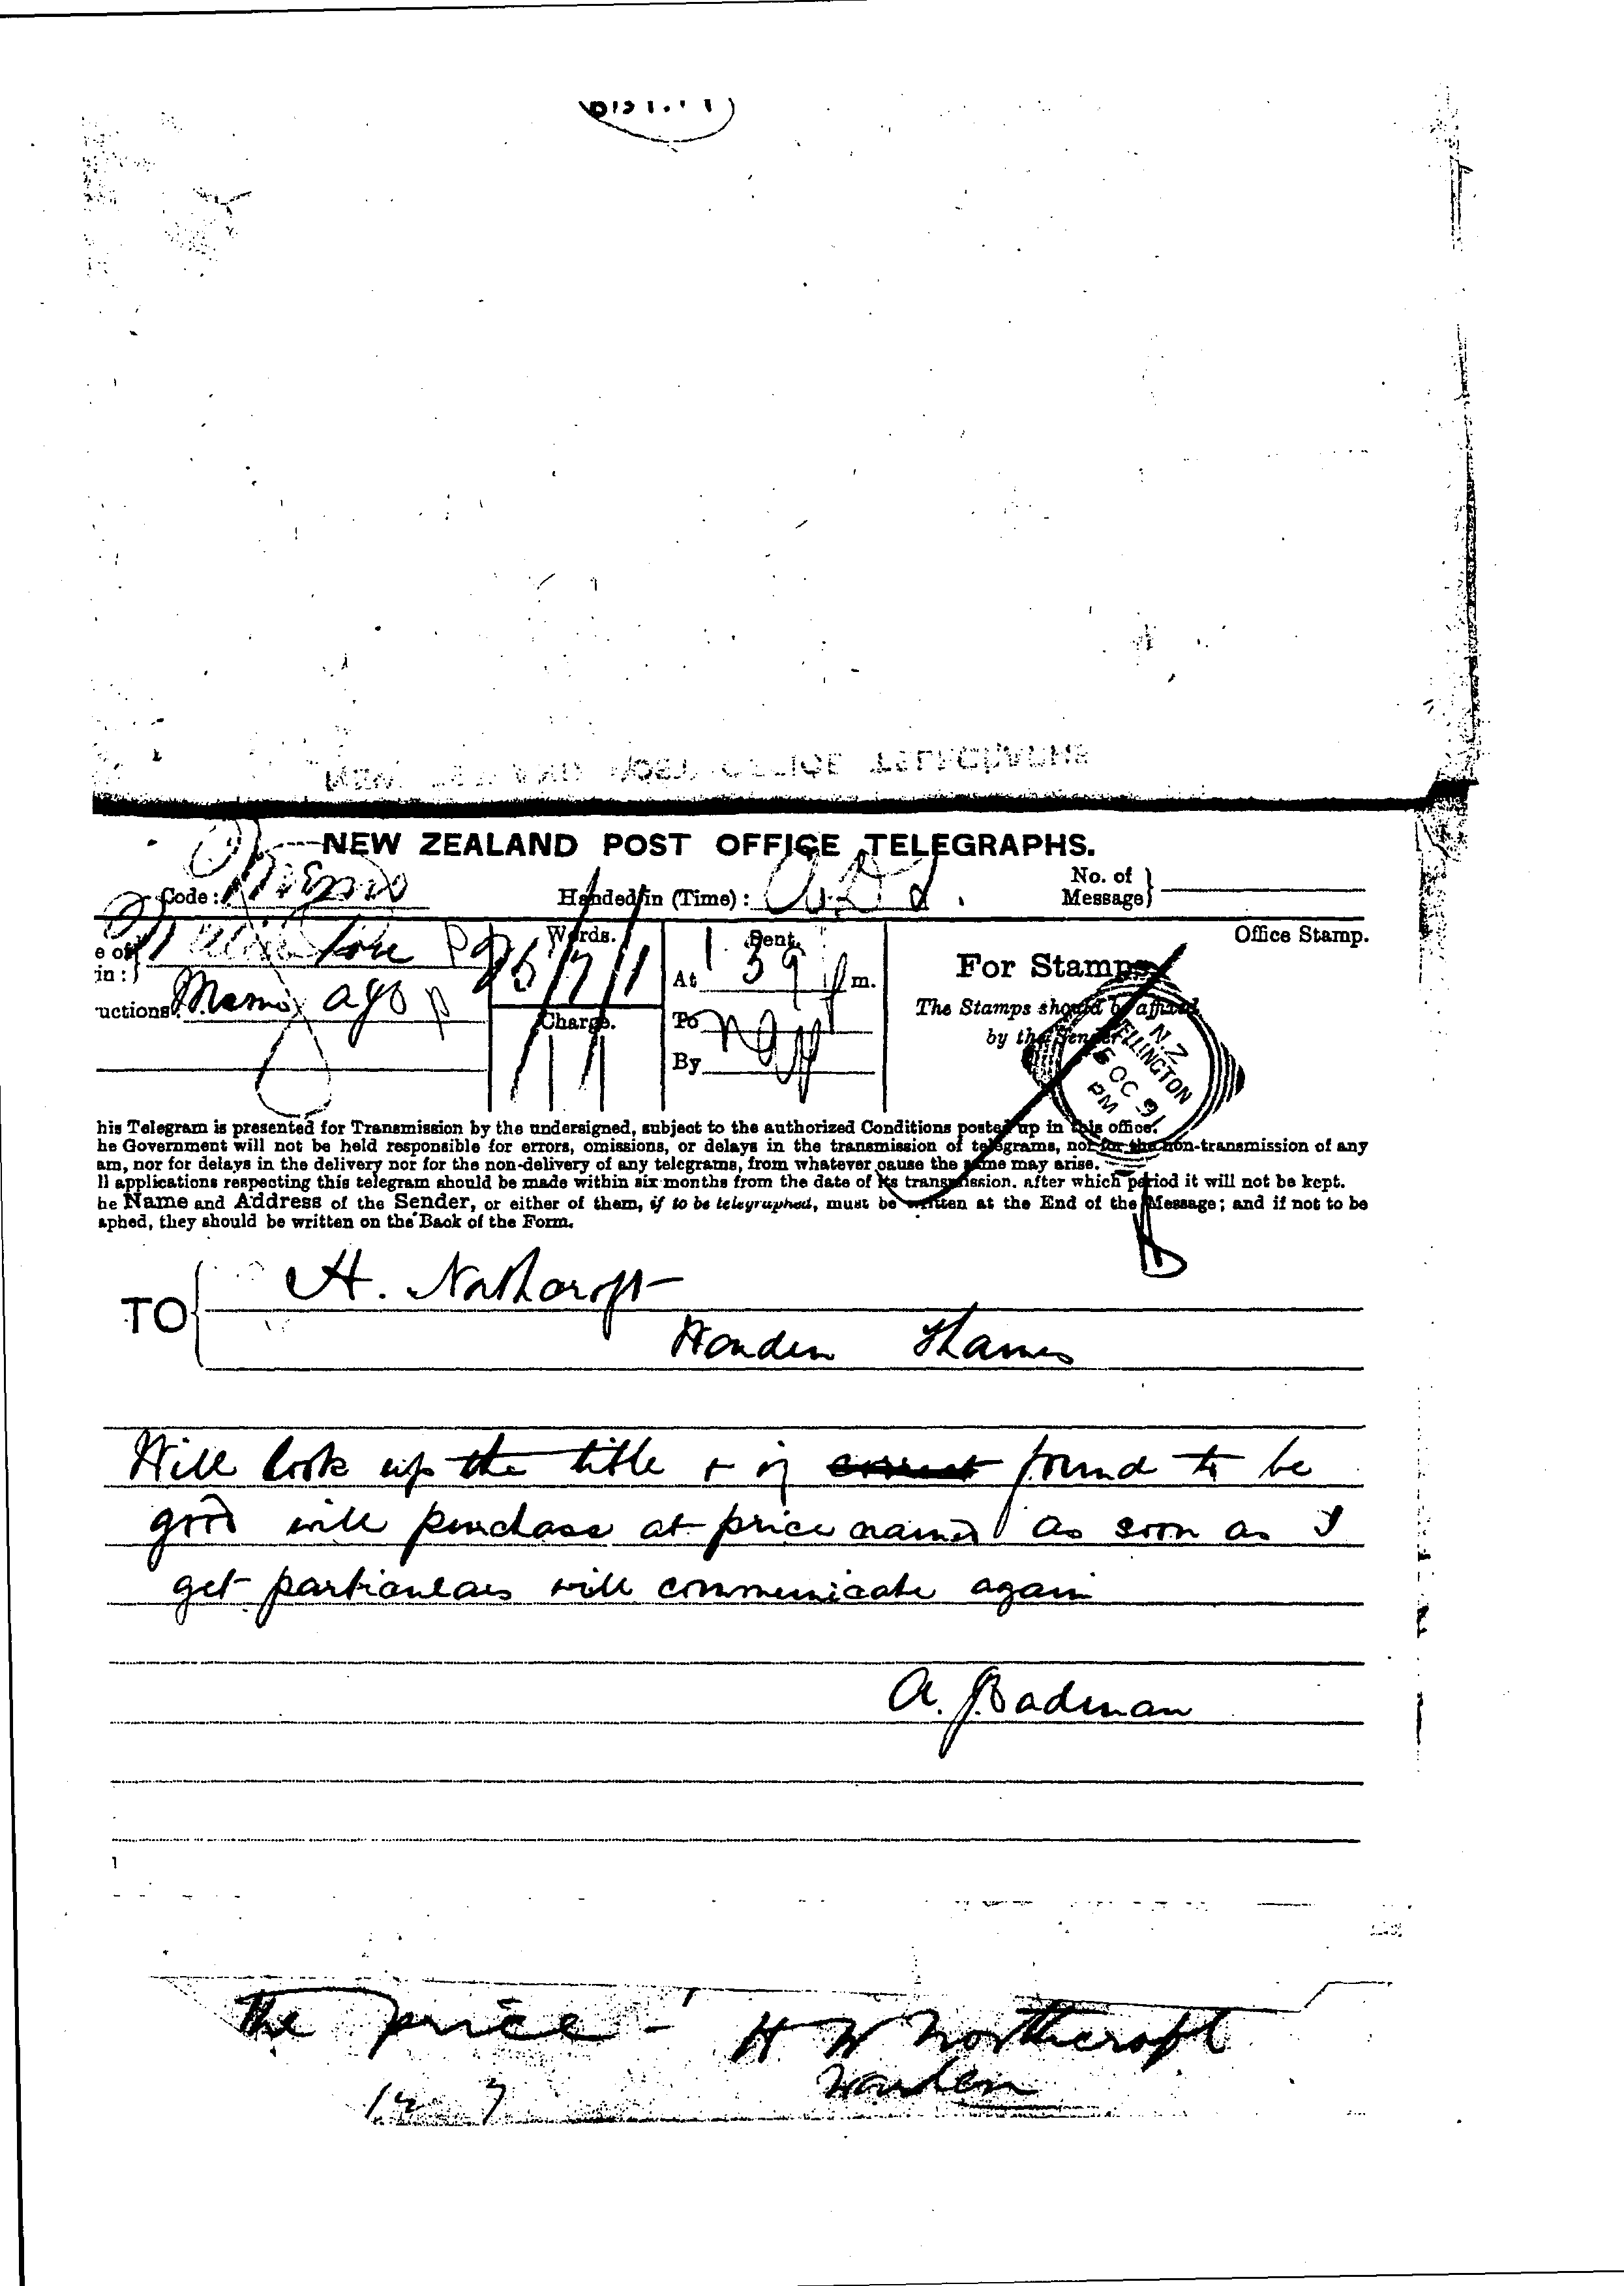 NEW ZEALAND POST OFFICE TELEGRAPHS.
Code: Memo
Handed in (Time):
No. of Message}
e of
in:}
Words.
Sent.
Office Stamp.
At 1 39 p m.
For Stamps.
uctions: Memo ago
Charge.
To
The Stamps should be affixed
by the Sender
By
N.Z
ELLINGTON
5 OC 91
PM
his Telegram is presented for Transmission by the undersigned, subject to the authorized Conditions posted up in this office.
he Government will not be held responsible for errors, omissions, or delays in the transmission of telegrams, nor for the non-transmission of any
am, nor for delays in the delivery nor for the non-delivery of any telegrams, from whatever cause the same may arise.
ll applications respecting this telegram should be made within six months from the date of its transmission, after which period it will not be kept.
he Name and Address of the Sender, or either of them, if to be telegraphed, must be written at the End of the Message; and if not to be
aphed, they should be written on the Back of the Form.
TO { H. Northcroft
Warden Thames
Will look up the title + if correct found to be
good will purchase at price named as soon as I
get particulars will communicate again
A. J. Cadman
The price - H W Northcroft
Warden